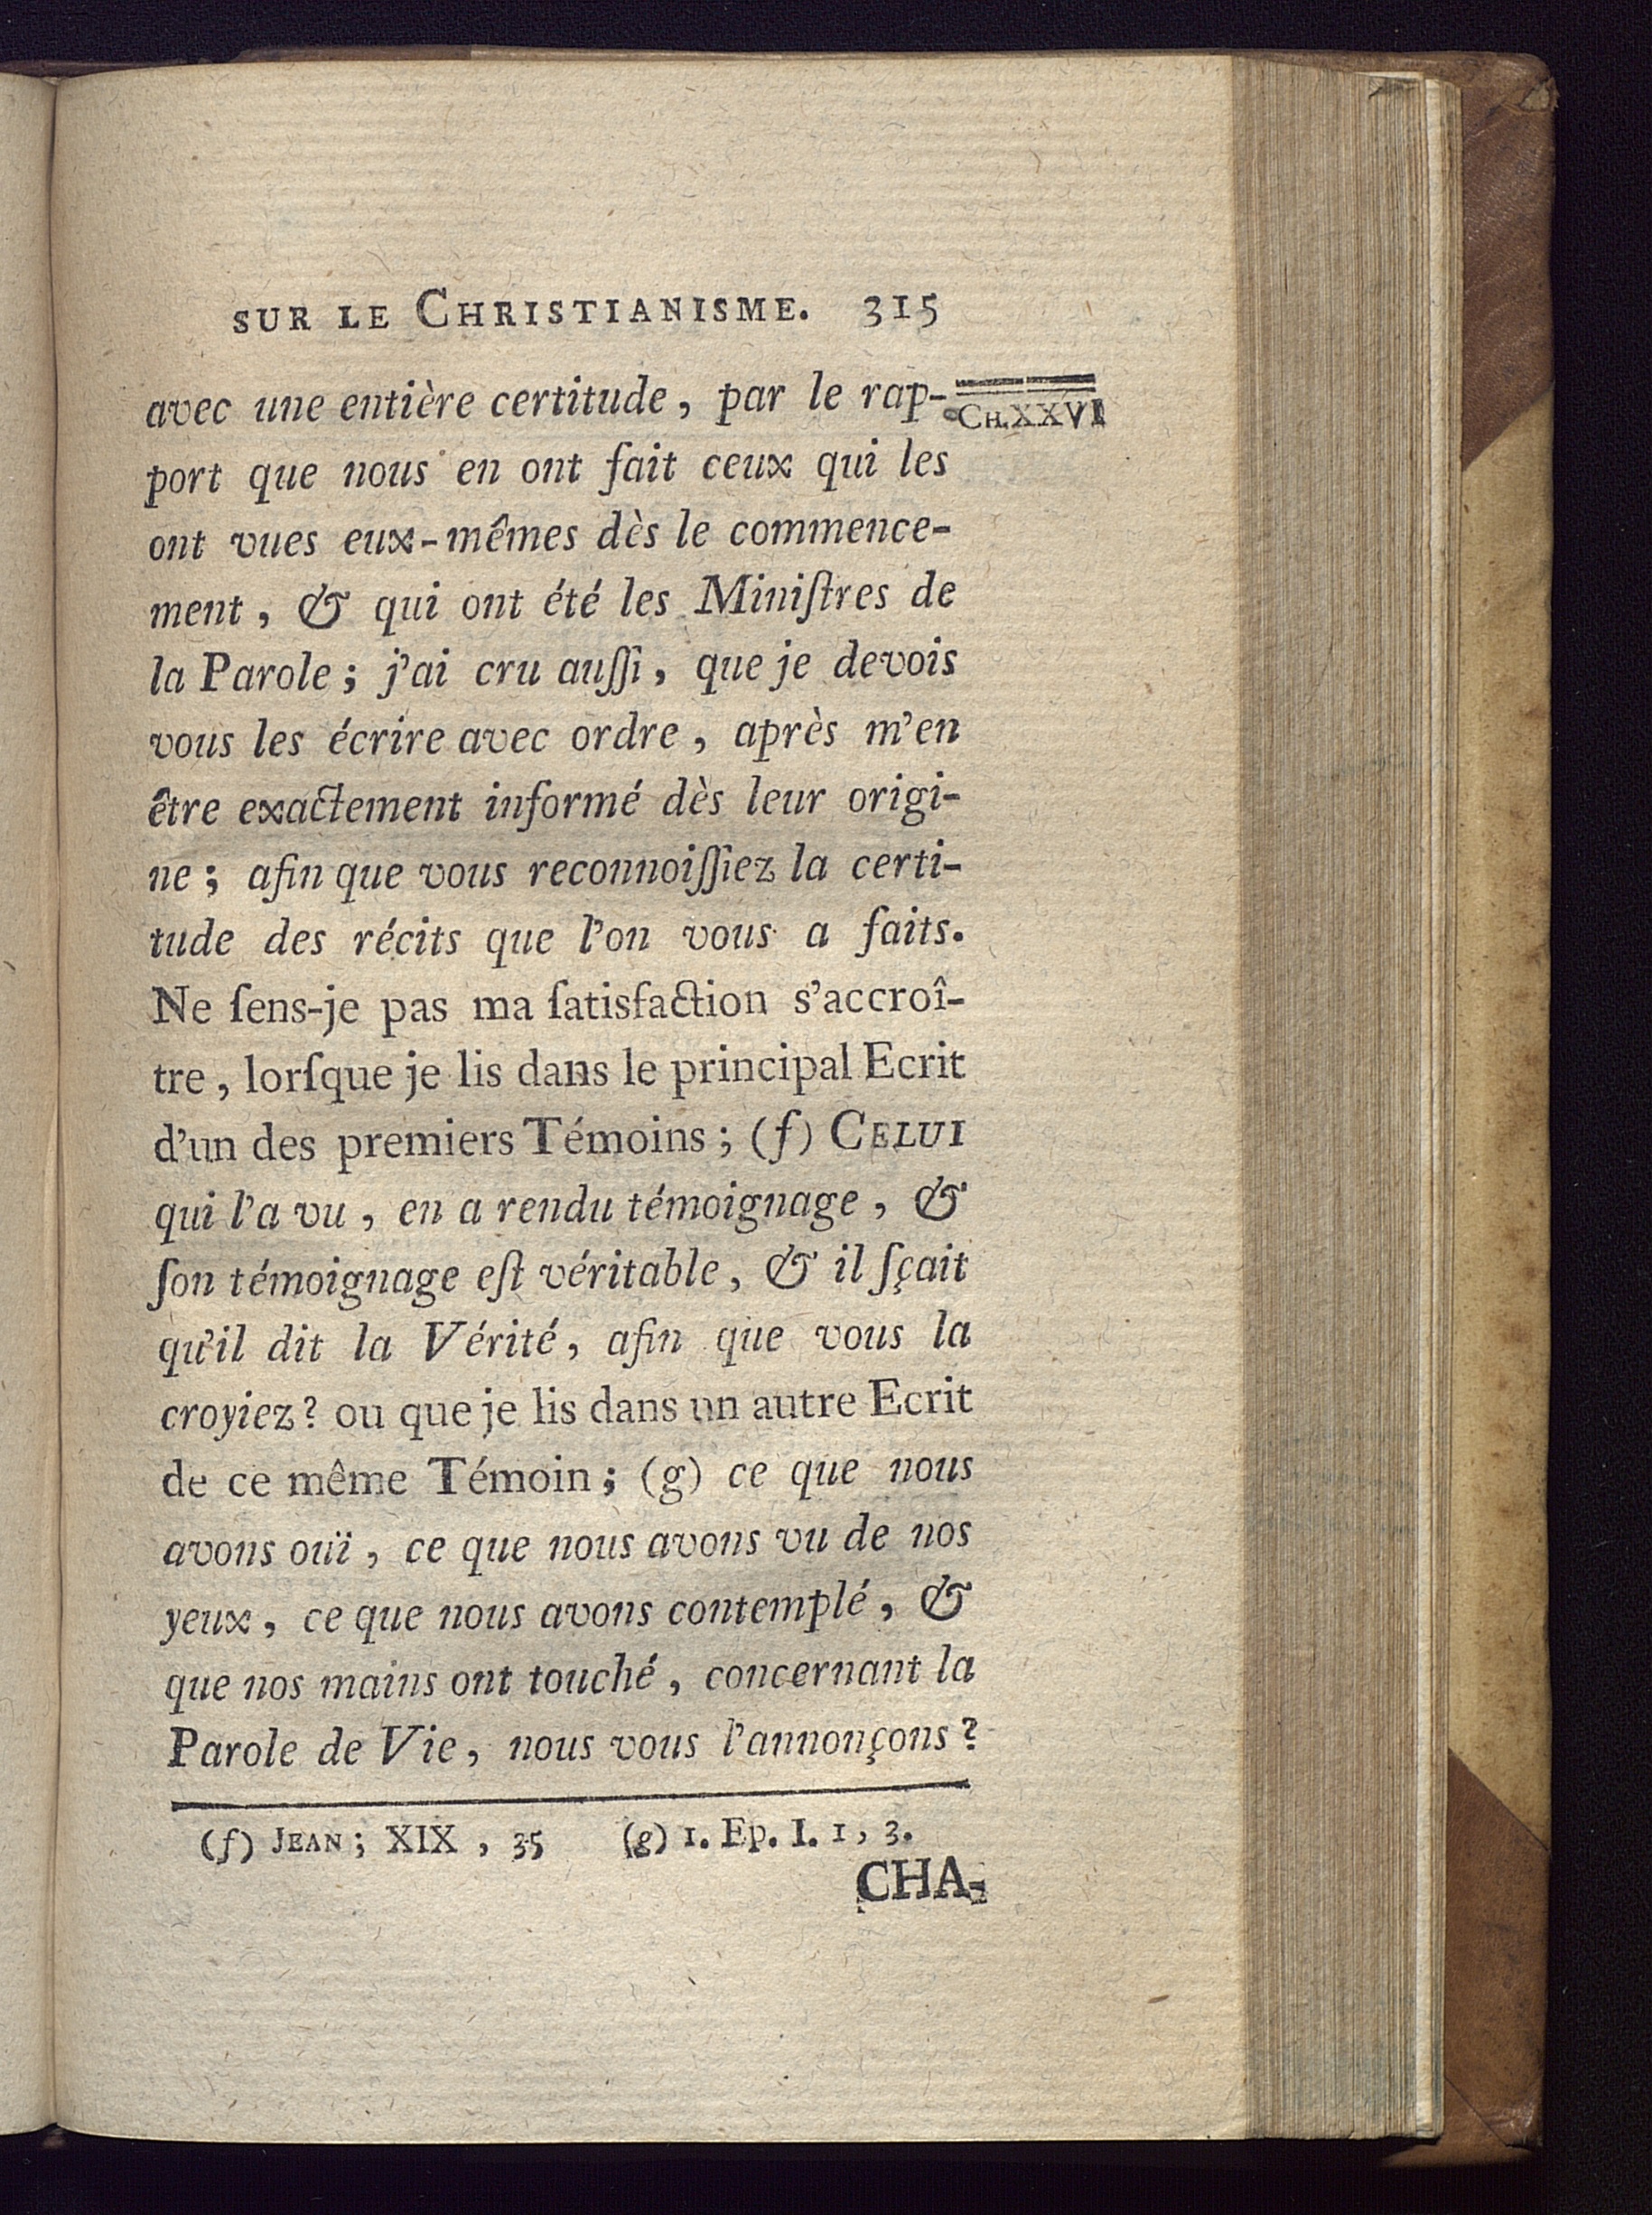 SUR LE CHRISTIANISME. 315
avec une entière certitude, par le rap-
CH.XXVI
port que nous en ont fait ceux qui les
ont vues eux-mêmes dès le commence-
ment, & qui ont été les Miniſtres de
la Parole; j'ai cru auſſi, que je devois
vous les écrire avec ordre, après m'en
être exactement informé dès leur origi-
ne; afin que vous reconnoiſſiez la certi-
tude des récits que l'on vous a faits.
Ne ſens-je pas ma ſatisfaction s'accroî-
tre, lorſque je lis dans le principal Ecrit
d'un des premiers Témoins; (f) CELUI
qui l'a vu, en a rendu témoignage, &
ſon témoignage eſt véritable, & il ſçait
qu'il dit la Vérité, afin que vous la
croyiez? ou que je lis dans un autre Ecrit
de ce même Témoin; (g) ce que nous
avons ouï, ce que nous avons vu de nos
yeux, ce que nous avons contemplé, &
que nos mains ont touché, concernant la
Parole de Vie, nous vous l'annonçons?
(f) JEAN; XIX, 35 (g) 1. Ep. I. 1, 3.
CHA-